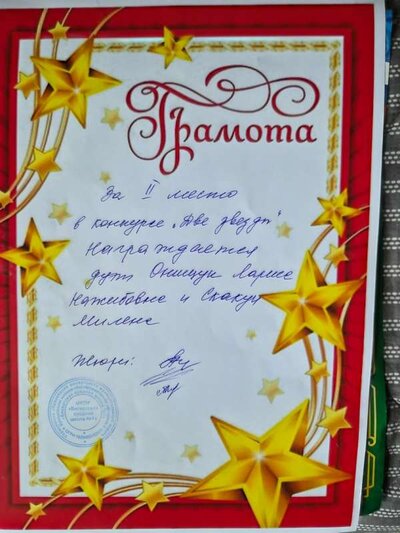 Грамота
За II место
в конкурсе „Две звезды"
Награждается
дуэт Онищук Ларисе
Нажибовне и Скакун
Милене
Жюри: